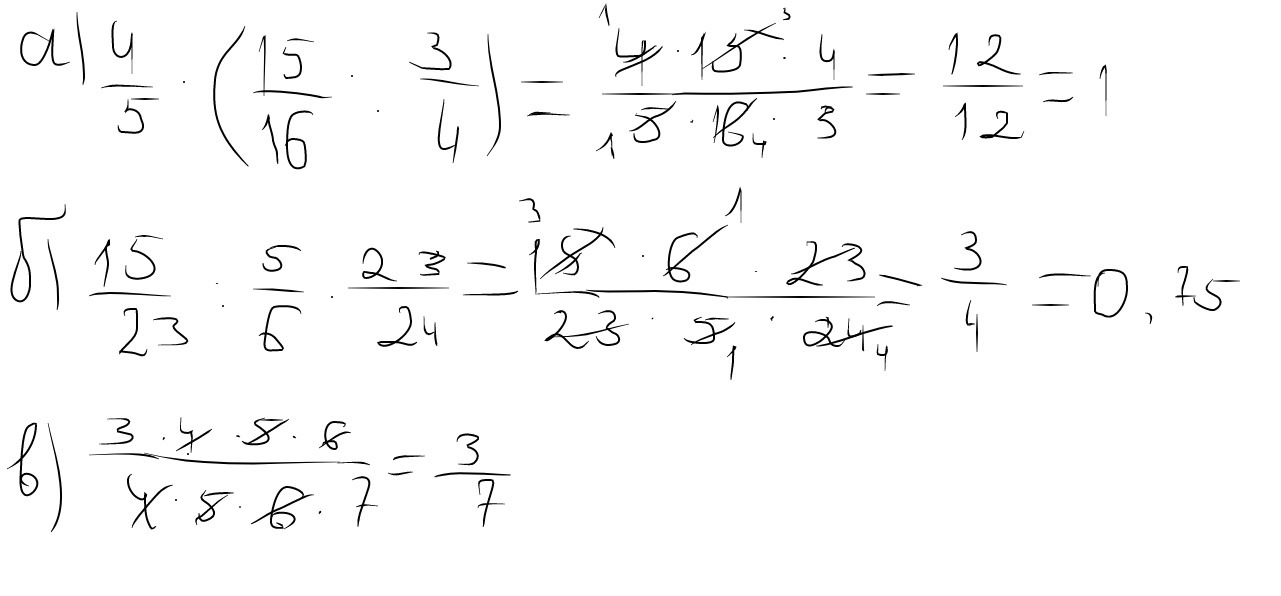 а) 4/5 · (15/16 : 3/4) = (4 · 15 · 4)/(5 · 16 · 3) = 12/12 = 1
б) 15/23 : 5/6 · 23/24 = (15 · 6 · 23)/(23 · 5 · 24) = 3/4 = 0,75
в) (3 · 4 · 5 · 6)/(4 · 5 · 6 · 7) = 3/7